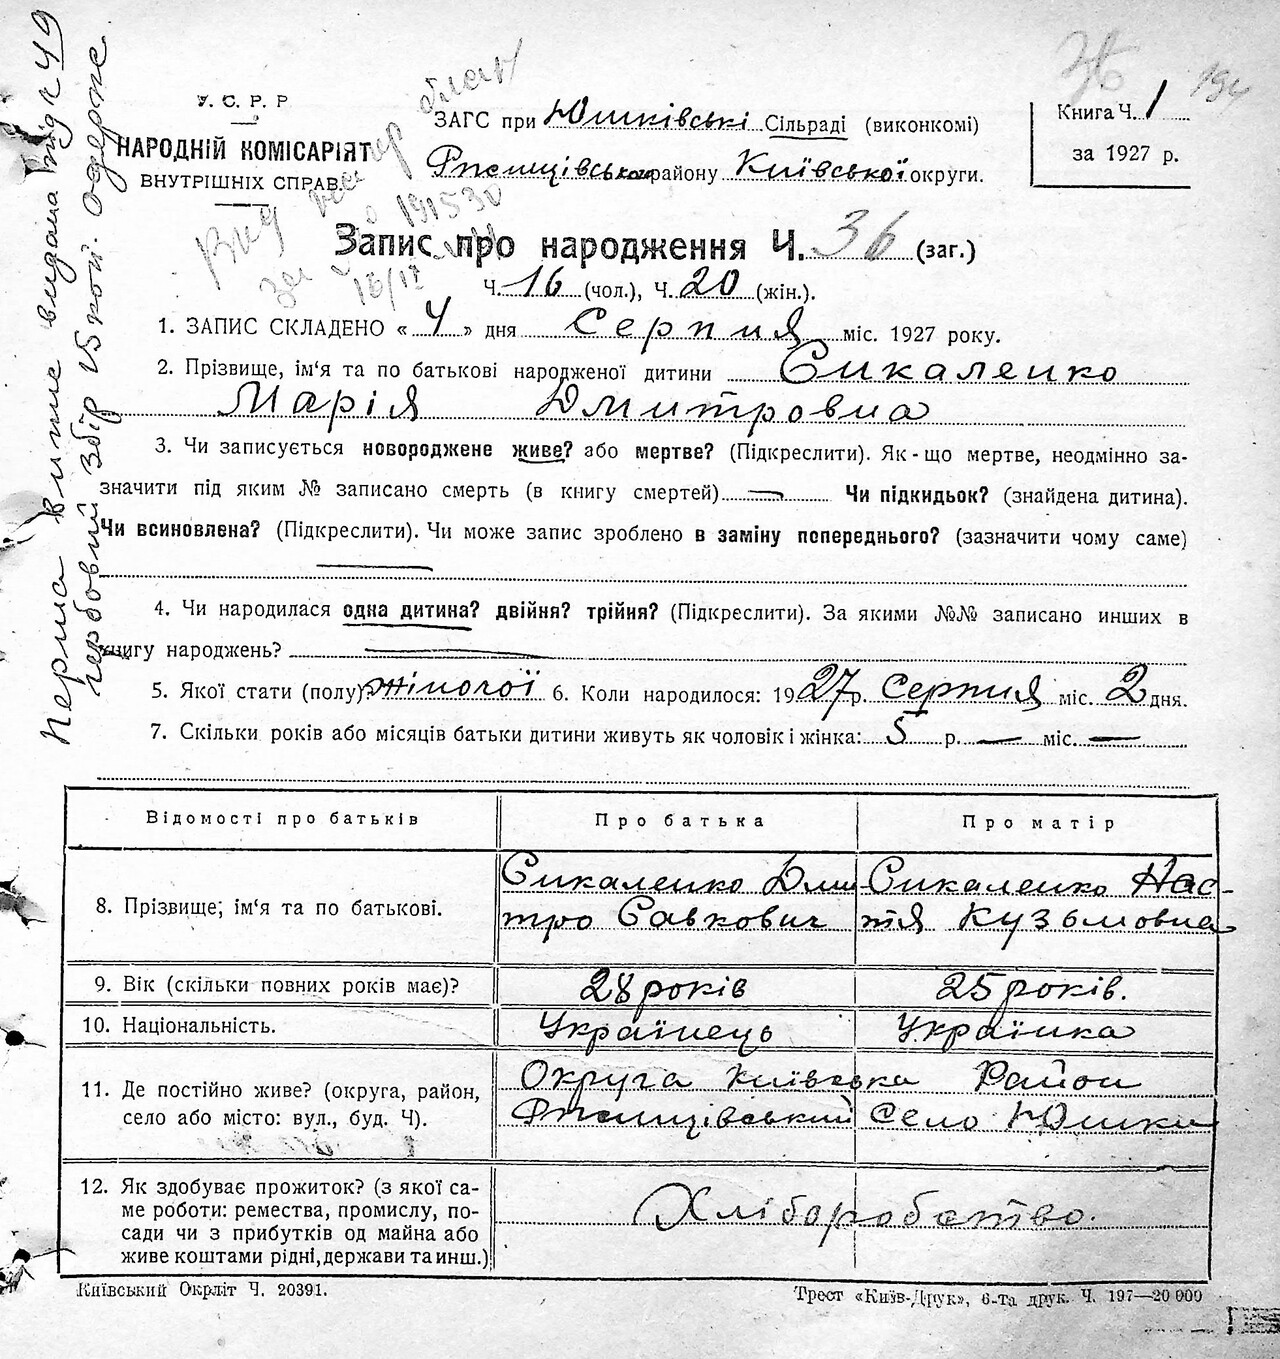 У. С. Р. Р
НАРОДНІЙ КОМІСАРІЯТ
ВНУТРІШНІХ СПРАВ
ЗАГС при Юшківські Сільраді (виконкомі)
Ржищівського району Київської округи.
Книга Ч. 1
за 1927 р.
36
194
Запис про народження Ч. 36 (заг.)
Ч. 16 (чол.), Ч. 20 (жін.).
1. ЗАПИС СКЛАДЕНО « 4 » дня Серпня міс. 1927 року.
2. Прізвище, ім‘я та по батькові народженої дитини Сикаленко
Марія Дмитровна
3. Чи записується новороджене живе? або мертве? (Підкреслити). Як-що мертве, неодмінно за-
значити під яким № записано смерть (в книгу смертей) — Чи підкидьок? (знайдена дитина).
Чи всиновлена? (Підкреслити). Чи може запис зроблено в заміну попереднього? (зазначити чому саме)
4. Чи народилася одна дитина? двійня? трійня? (Підкреслити). За якими №№ записано инших в
книгу народжень? —
5. Якої стати (полу)? жіночої 6. Коли народилося: 1927 р. Серпня міс. 2 дня.
7. Скільки років або місяців батьки дитини живуть як чоловік і жінка: 5 р. — міс. —
Відомості про батьків Про батька Про матір
8. Прізвище, ім‘я та по батькові. Сикаленко Дми Сикаленко Нас-
тро Савкович тя Кузьмовна
9. Вік (скільки повних років має)? 28 років 25 років.
10. Національність. Українець Українка
11. Де постійно живе? (округа, район, Округа Київська Район
село або місто: вул., буд. Ч). Ржищівський Село Юшки
12. Як здобуває прожиток? (з якої са-
ме роботи: ремества, промислу, по- Хліборобство.
сади чи з прибутків од майна або
живе коштами рідні, держави та инш.)
Київський Окрліт Ч. 20391.
Трест «Київ-Друк», 6-та друк. Ч. 197—20 000
Перша витпс видана під № 49
гербовий збір 15 коп. одерж.
191530
16/IV